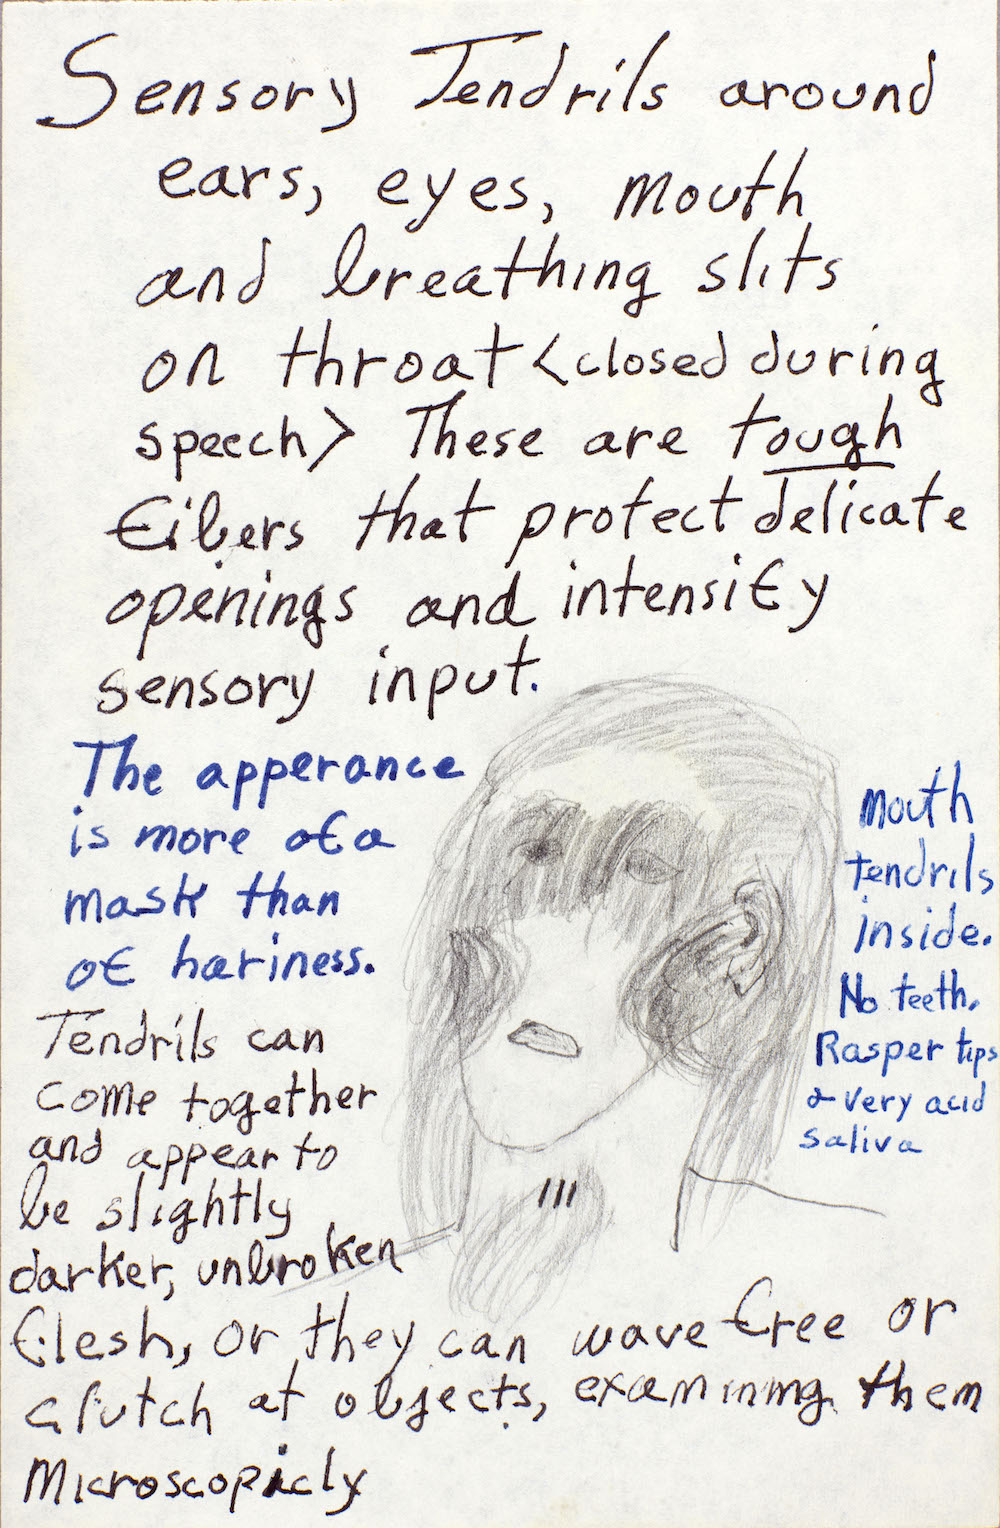 Sensory Tendrils around
ears, eyes, mouth
and breathing slits
on throat <closed during
speech> These are tough
fibers that protect delicate
openings and intensify
sensory input.
The apperance
is more of a
mask than
of hariness.
Tendrils can
come together
and appear to
be slightly
darker, unbroken
flesh, or they can wave free or
clutch at objects, examining them
Microscopicly
Mouth
tendrils
inside.
No teeth.
Rasper tips
& very acid
saliva